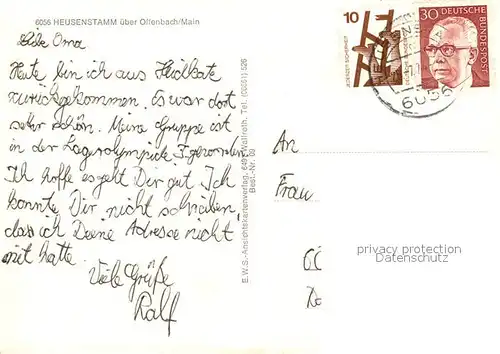 6056 HEUSENSTAMM über Offenbach/Main
Liebe Oma
Heute bin ich aus
zurückgekommen. Es war dort
sehr schön. Meine Gruppe ist
in der Lagerolympiade 3. geworden.
Ich hoffe es geht Dir gut. Ich
konnte Dir nicht schreiben,
das ich Deine Adresse nicht
mit hatte.
Viele Grüße
Ralf
E.W.S.-Ansichtskartenverlag, Tel. (06051) 526
Best.-Nr.
10
JEDERZEIT SICHERHEIT
30
DEUTSCHE
BUNDESPOST
6056
An
Frau
privacy protection